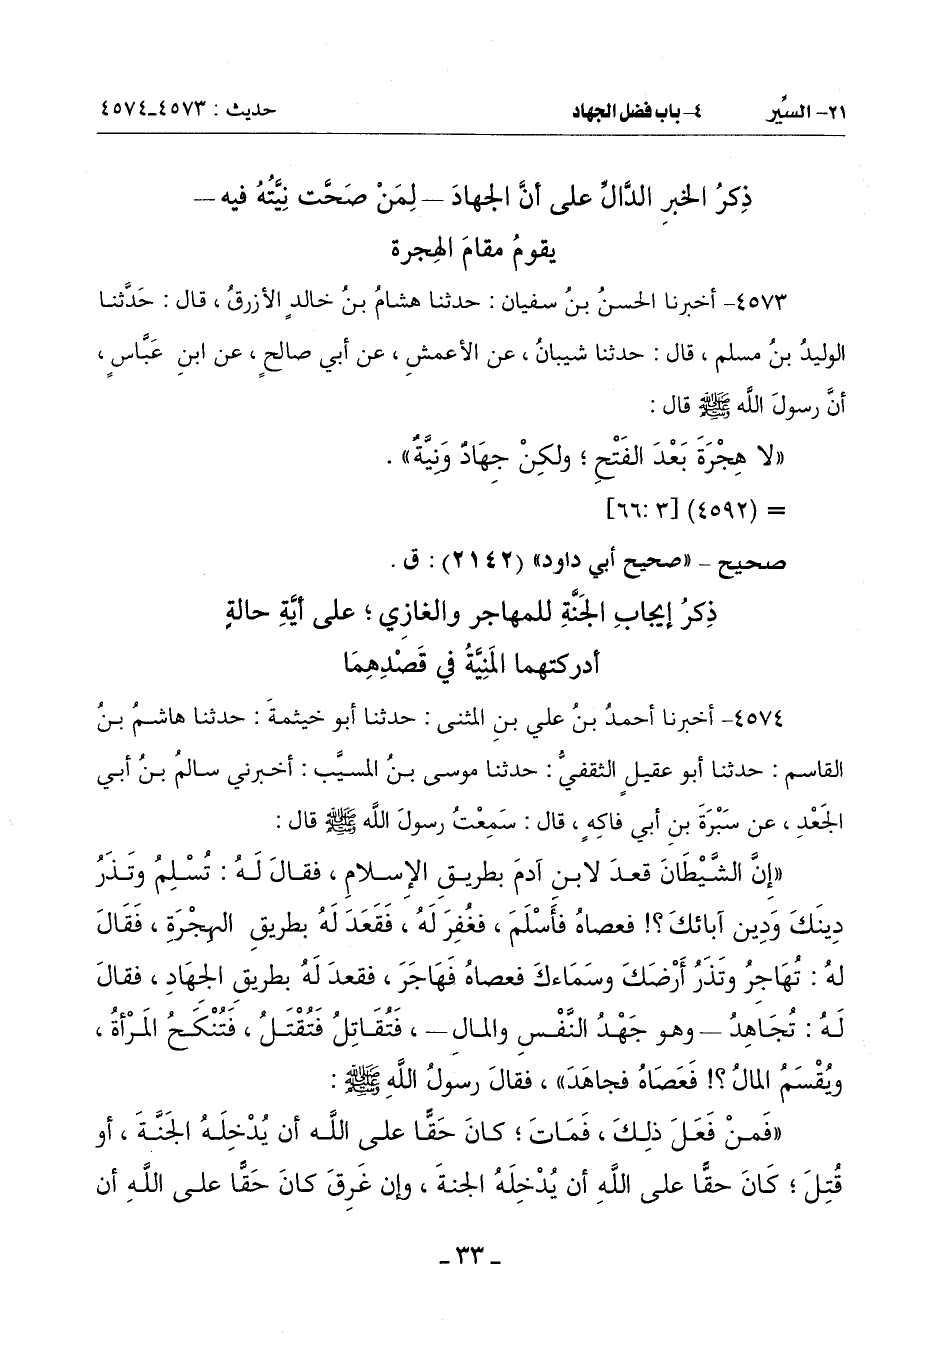 ٢١- السِّير ٤- باب فضل الجهاد حديث : ٤٥٧٣-٤٥٧٤
ذِكرُ الخبرِ الدَّالِّ على أنَّ الجهادَ – لِمَنْ صَحَّت نِيَّتُهُ فيه –
يقومُ مقامَ الهِجرة
٤٥٧٣- أخبرنا الحسنُ بنُ سفيان : حدثنا هشامُ بنُ خالدٍ الأزرقُ ، قال : حَدَّثنا
الوليدُ بنُ مسلم ، قال : حدثنا شيبانُ ، عن الأعمشِ ، عن أبي صالحٍ ، عن ابنِ عَبَّاسٍ ،
أنَّ رسولَ اللَّه ﷺ قال :
«لا هِجْرَةَ بَعْدَ الفَتْحِ ؛ ولكِنْ جِهَادٌ وَنِيَّةٌ» .
= (٤٥٩٢) [٣ :٦٦]
صحيح – «صحيح أبي داود» (٢١٤٢) : ق .
ذِكرُ إيجابِ الجَنَّةِ للمهاجر والغازي ؛ على أيَّةِ حالةٍ
أدركتهما المَنِيَّةُ في قَصْدِهِمَا
٤٥٧٤- أخبرنا أحمدُ بنُ علي بنِ المثنى : حدثنا أبو خيثمةَ : حدثنا هاشمُ بنُ
القاسم : حدثنا أبو عقيلٍ الثقفيُّ : حدثنا موسى بنُ المسيَّب : أخبرني سالمُ بنُ أبي
الجَعْدِ ، عن سَبْرَةَ بنِ أبي فاكِهٍ ، قال : سَمِعْتُ رسولَ اللَّه ﷺ قال :
«إنَّ الشَّيْطَانَ قعدَ لابنِ آدمَ بطريقِ الإسلامِ ، فقالَ لَهُ : تُسْلِمُ وتَذَرُ
دِينَكَ وَدِين آبائكَ ؟! فعصاهُ فأَسْلَمَ ، فغُفِرَ لَهُ ، فَقَعَدَ لَهُ بطريقِ الهِجْرَةِ ، فَقَالَ
لهُ : تُهَاجرُ وتَذَرُ أَرْضَكَ وسَمَاءكَ فعصاهُ فَهَاجَرَ ، فقعدَ لَهُ بطريقِ الجهادِ ، فقالَ
لَهُ : تُجَاهِدُ – وهو جَهْدُ النَّفْسِ والمالِ – ، فَتُقَاتِلُ فَتُقْتَلُ ، فَتُنْكَحُ المَرْأةُ ،
ويُقْسَمُ المالُ ؟! فَعَصَاهُ فجاهَدَ» ، فقالَ رسولُ اللَّهِ ﷺ :
«فَمنْ فَعَلَ ذلِكَ ، فَمَاتَ ؛ كانَ حَقًّا على اللَّه أن يُدْخِلَهُ الجَنَّةَ ، أو
قُتِلَ ؛ كَانَ حقًّا على اللَّهِ أن يُدْخِلَهُ الجنةَ ، وإن غَرِقَ كانَ حَقًّا على اللَّهِ أن
- ٣٣ -